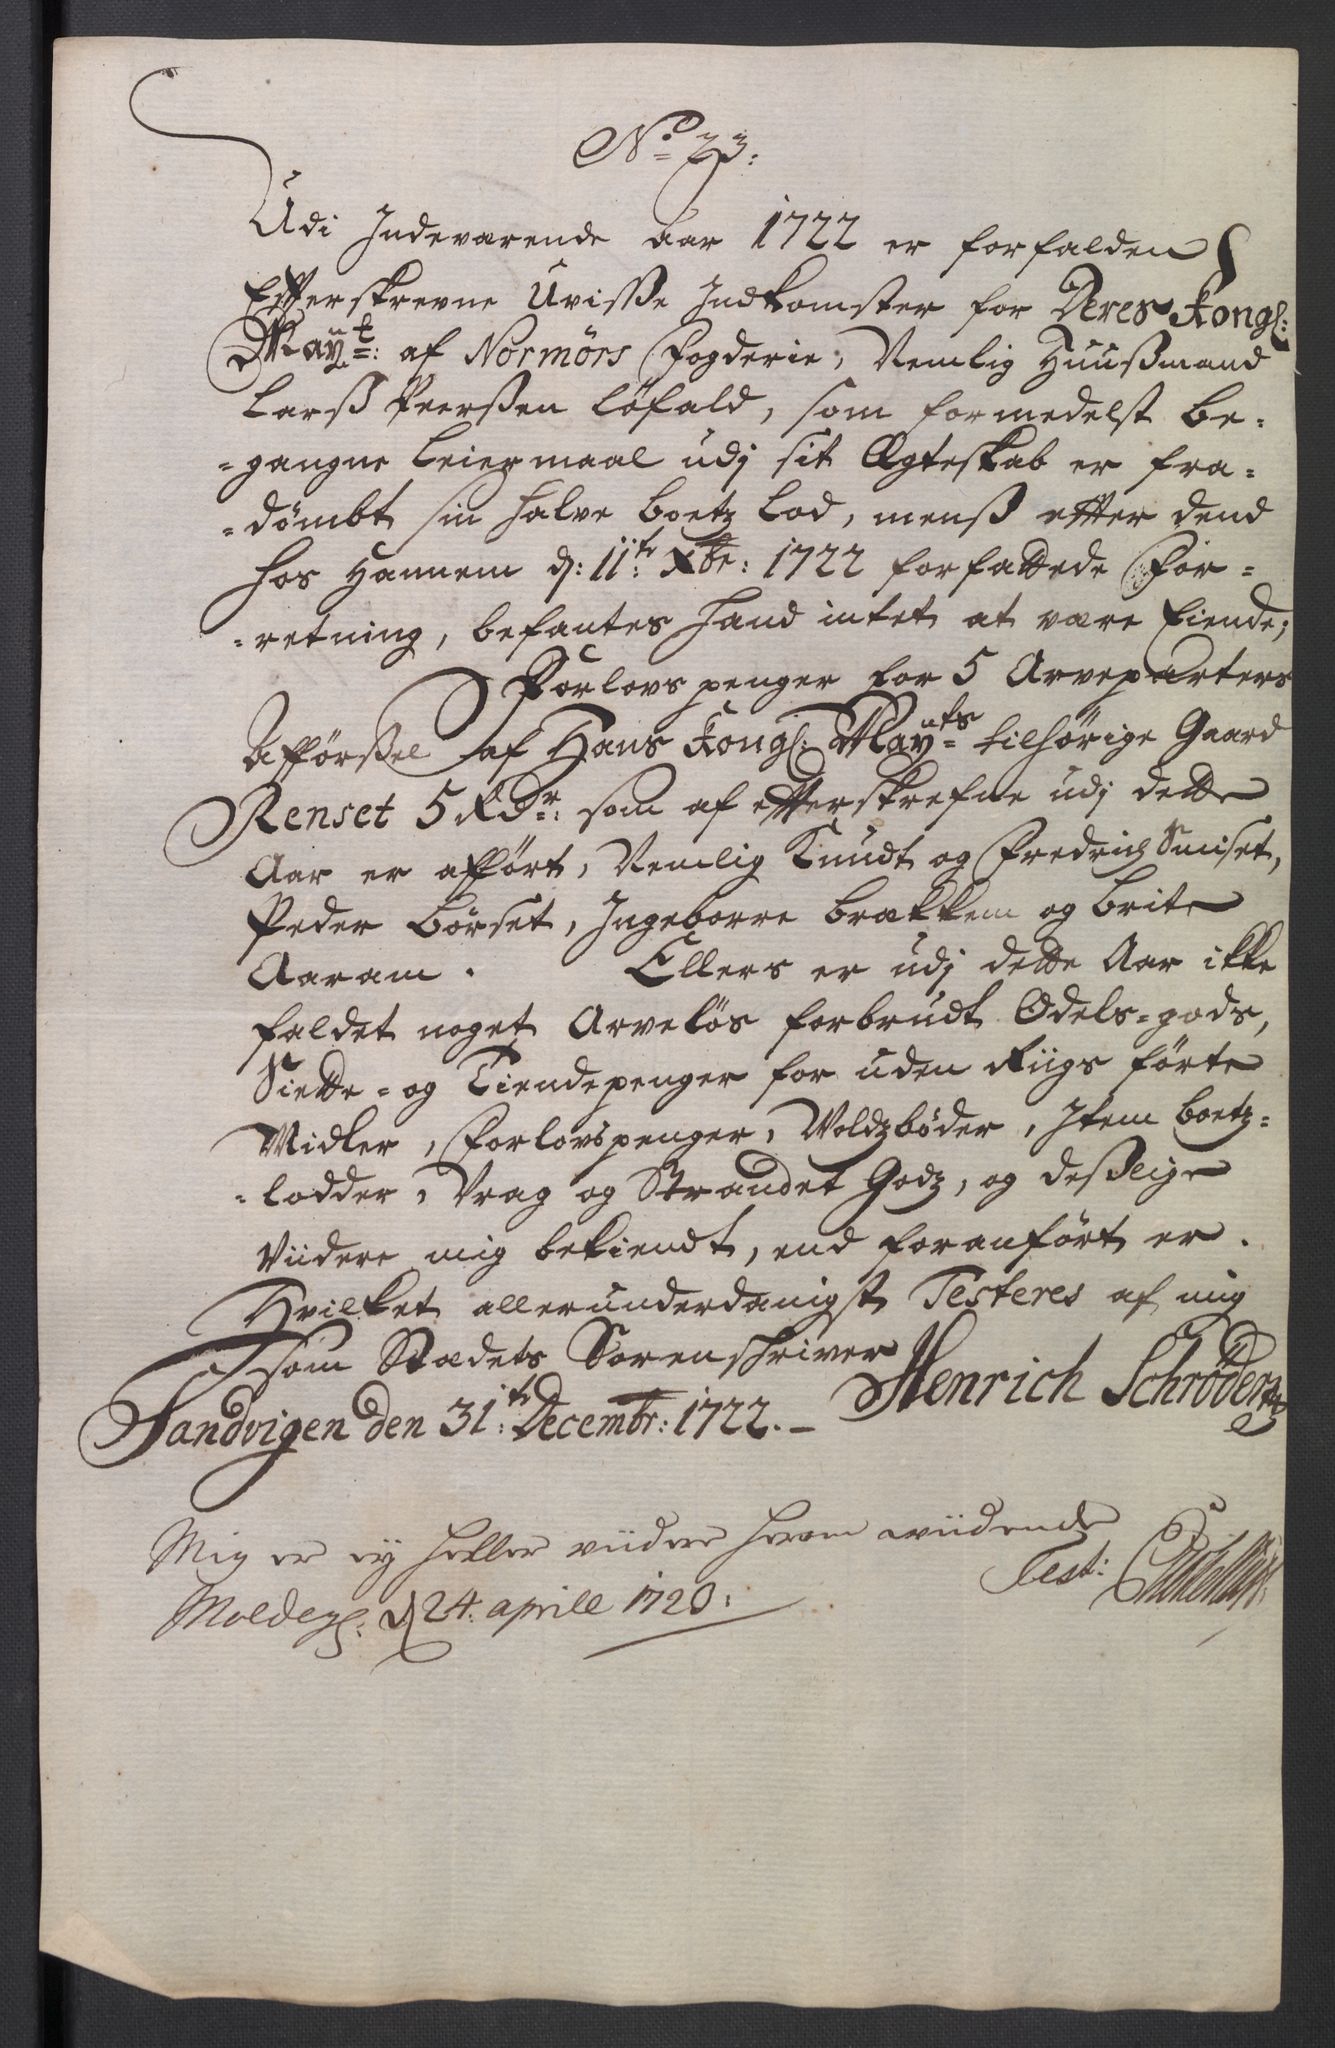 No 23:
Udi Indeværende Aar 1722 er forfalden
Efterskrevne Uvisse Indkomster for Deres Kongl:
Mayt: af Normörs Fogderie, Nemlig Huusmand
Larss Peerssen Löfald, som formedelst be-
-gangne Leiermaal udj sit Ægteskab er fra-
-dömbt sin halve boetz Lod, menss efter dend
hos Hannem d: 11te Xbr: 1722 forfattede For-
-retning, befantes hand intet at være Eiende;
Forlovs penger for 5 Arveparters
Afförssel af Hans Kongl: Mayts tilhörige Gaard
Renset 5 Rdr: som af efterskrefne udj dette
Aar er affört, Nemlig Knudt og Fredrich Smiset,
Peder Börset, Ingeborre Brækkem og Brite
Aaram. Ellers er udj dette Aar ikke
faldet noget Arvelös forbrudt Odels-gods,
Siette- og Tiendepenger for uden Riigs förte
Midler, Forlovspenger, Voldzböder, Item boetz-
-lodder, Vrag og Strandet Godz, og desslige
viidere mig bekiendt, end foranfört er.
Hvilket allerunderdanigst Testeres af mig
som Stædets Sorenschriver Henrich Schröder
Sandvigen den 31te Decembr: 1722.-
Mig er ey heller viidere herom widende
Test:
Molde d 24. aprill 1723: